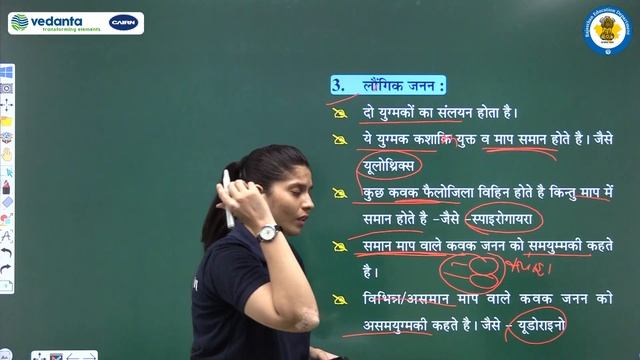 vedanta
transforming elements
CAIRN
Rajasthan Education Department
3. लौंगिक जनन :
दो युग्मकों का संलयन होता है।
ये युग्मक कशाकि युक्त व माप समान होते है। जैसे
यूलोथ्रिक्स
कुछ कवक फैलोजिला विहिन होते है किन्तु माप में
समान होते है -जैसे -स्पाइरोगायरा
समान माप वाले कवक जनन को समयुग्मकी कहते
है।
विभिन्न/असमान माप वाले कवक जनन को
असमयुग्मकी कहते है। जैसे - यूडोराइनो